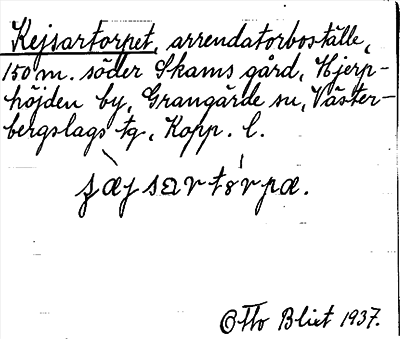 Kejsartorpet, arrendatorboställe,
150 m. söder Skams gård, Hjerp-
höjden by, Grangärde sn, Väster-
bergslags tg, Kopp. l.
Otto Blixt 1937.